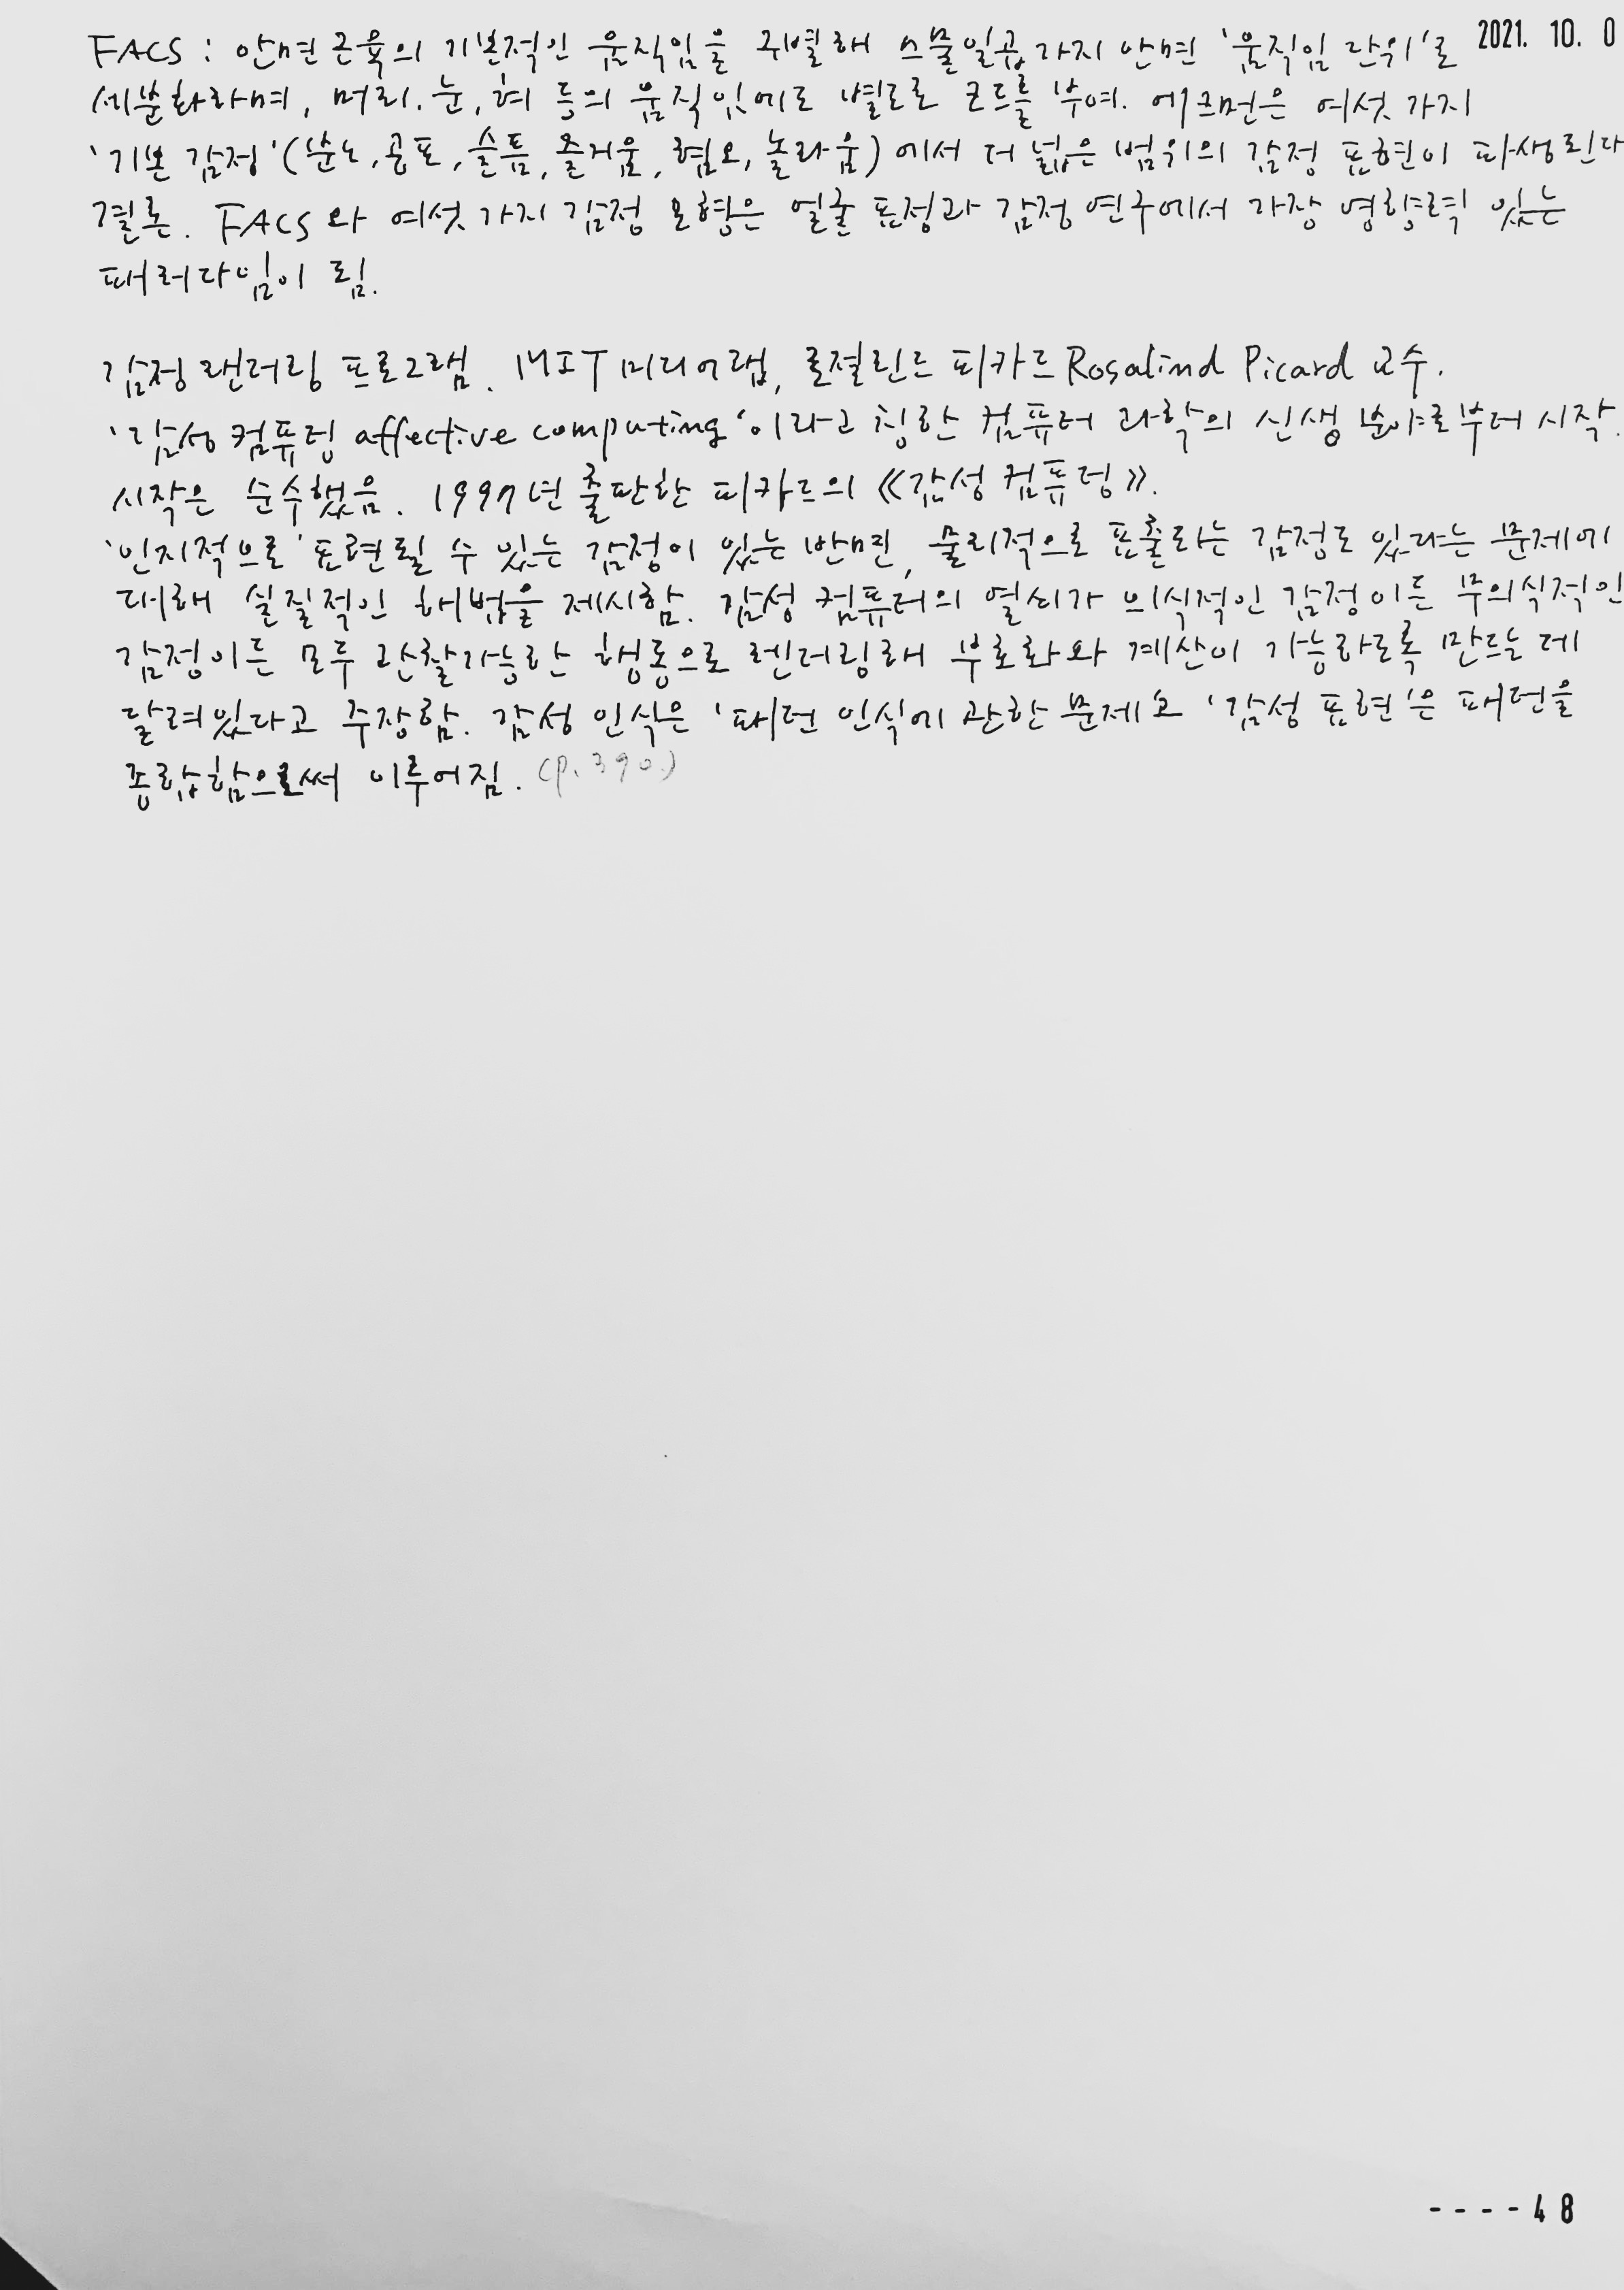 2021. 10. 0
FACS : 안면근육의 기본적인 움직임을 구별해 스물일곱가지 안면 '움직임 단위'로
세분화하며, 머리, 눈, 혀 등의 움직임에도 별도로 코드를 부여. 에크먼은 여섯 가지
'기본 감정'(분노, 공포, 슬픔, 즐거움, 혐오, 놀라움)에서 더 넓은 범위의 감정 표현이 파생된다
결론. FACS와 여섯 가지 감정 모형은 얼굴 표정과 감정 연구에서 가장 영향력 있는
패러다임이 됨.
감정 랜더링 프로그램. MIT 미디어랩, 로절린드 피카드 Rosalind Picard 교수.
'감성 컴퓨팅 affective computing'이라고 칭한 컴퓨터 과학의 신생 분야로부터 시작.
시작은 순수했음. 1997년 출판한 피카드의 《감성 컴퓨팅》.
'인지적으로' 표현될 수 있는 감정이 있는 반면, 물리적으로 표출하는 감정도 있다는 문제에
대해 실질적인 해법을 제시함. 감성 컴퓨터의 열쇠가 의식적인 감정이든 무의식적인
감정이든 모두 관찰가능한 행동으로 렌더링해 부호화와 계산이 가능하도록 만드는 데
달려있다고 주장함. 감성 인식은 '패턴 인식에 관한 문제'고 '감성 표현'은 패턴을
종합함으로써 이루어짐. (p. 390.)
----48